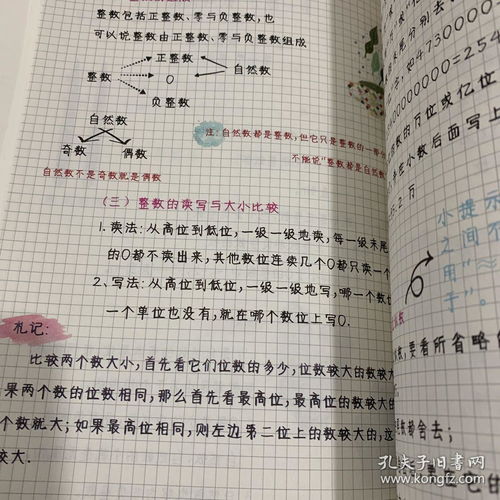 整数包括正整数、零与负整数,也
可以说整数由正整数、零与负整数组成
正整数
整数
0
自然数
负整数
自然数
奇数 偶数
自然数不是奇数就是偶数
注:自然数都是整数,但它只是整数的一部
不能说“整数都是自然数
(三)整数的读写与大小比较
1.读法:从高位到低位,一级一级地读,每一级末尾
的0都不读出来,其他数位连续几个0都只读一个
2、写法:从高位到低位,一级一级地写,哪一个数位
一个单位也没有,就在哪个数位上写0.
札记:
比较两个数大小,首先看它们位数的多少,位数较大的数较大
果两个数的位数相同,那么首先看最高位,最高位的数较大的
个数就大;如果最高位相同,则左边第二位上的数较大的,这
较大.
末尾分别去
如4730000
00000000=254
数的万位或亿位
在小数后面写上
5.2万
小提示
之间不
用“≈
于”。
数,要看所省略的
都舍去;
它的
孔夫子旧书网
www.kongfz.com